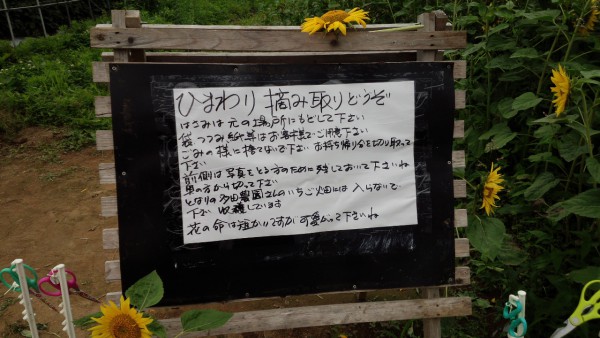 ひまわり 摘み取りどうぞ
はさみは元の場所にもどして下さい
袋 つつみ紙等はお客様でご用意下さい
ごみの様に捨てないで下さい お持ち帰り分を切り取って
下さい
前の側は写真をとる方のために残しておいて下さいね
奥の方から切って下さい
となりの多田農園さんのいちご畑には入らないで
下さい 収穫しています
花の命は短かいですが可愛がって下さいね